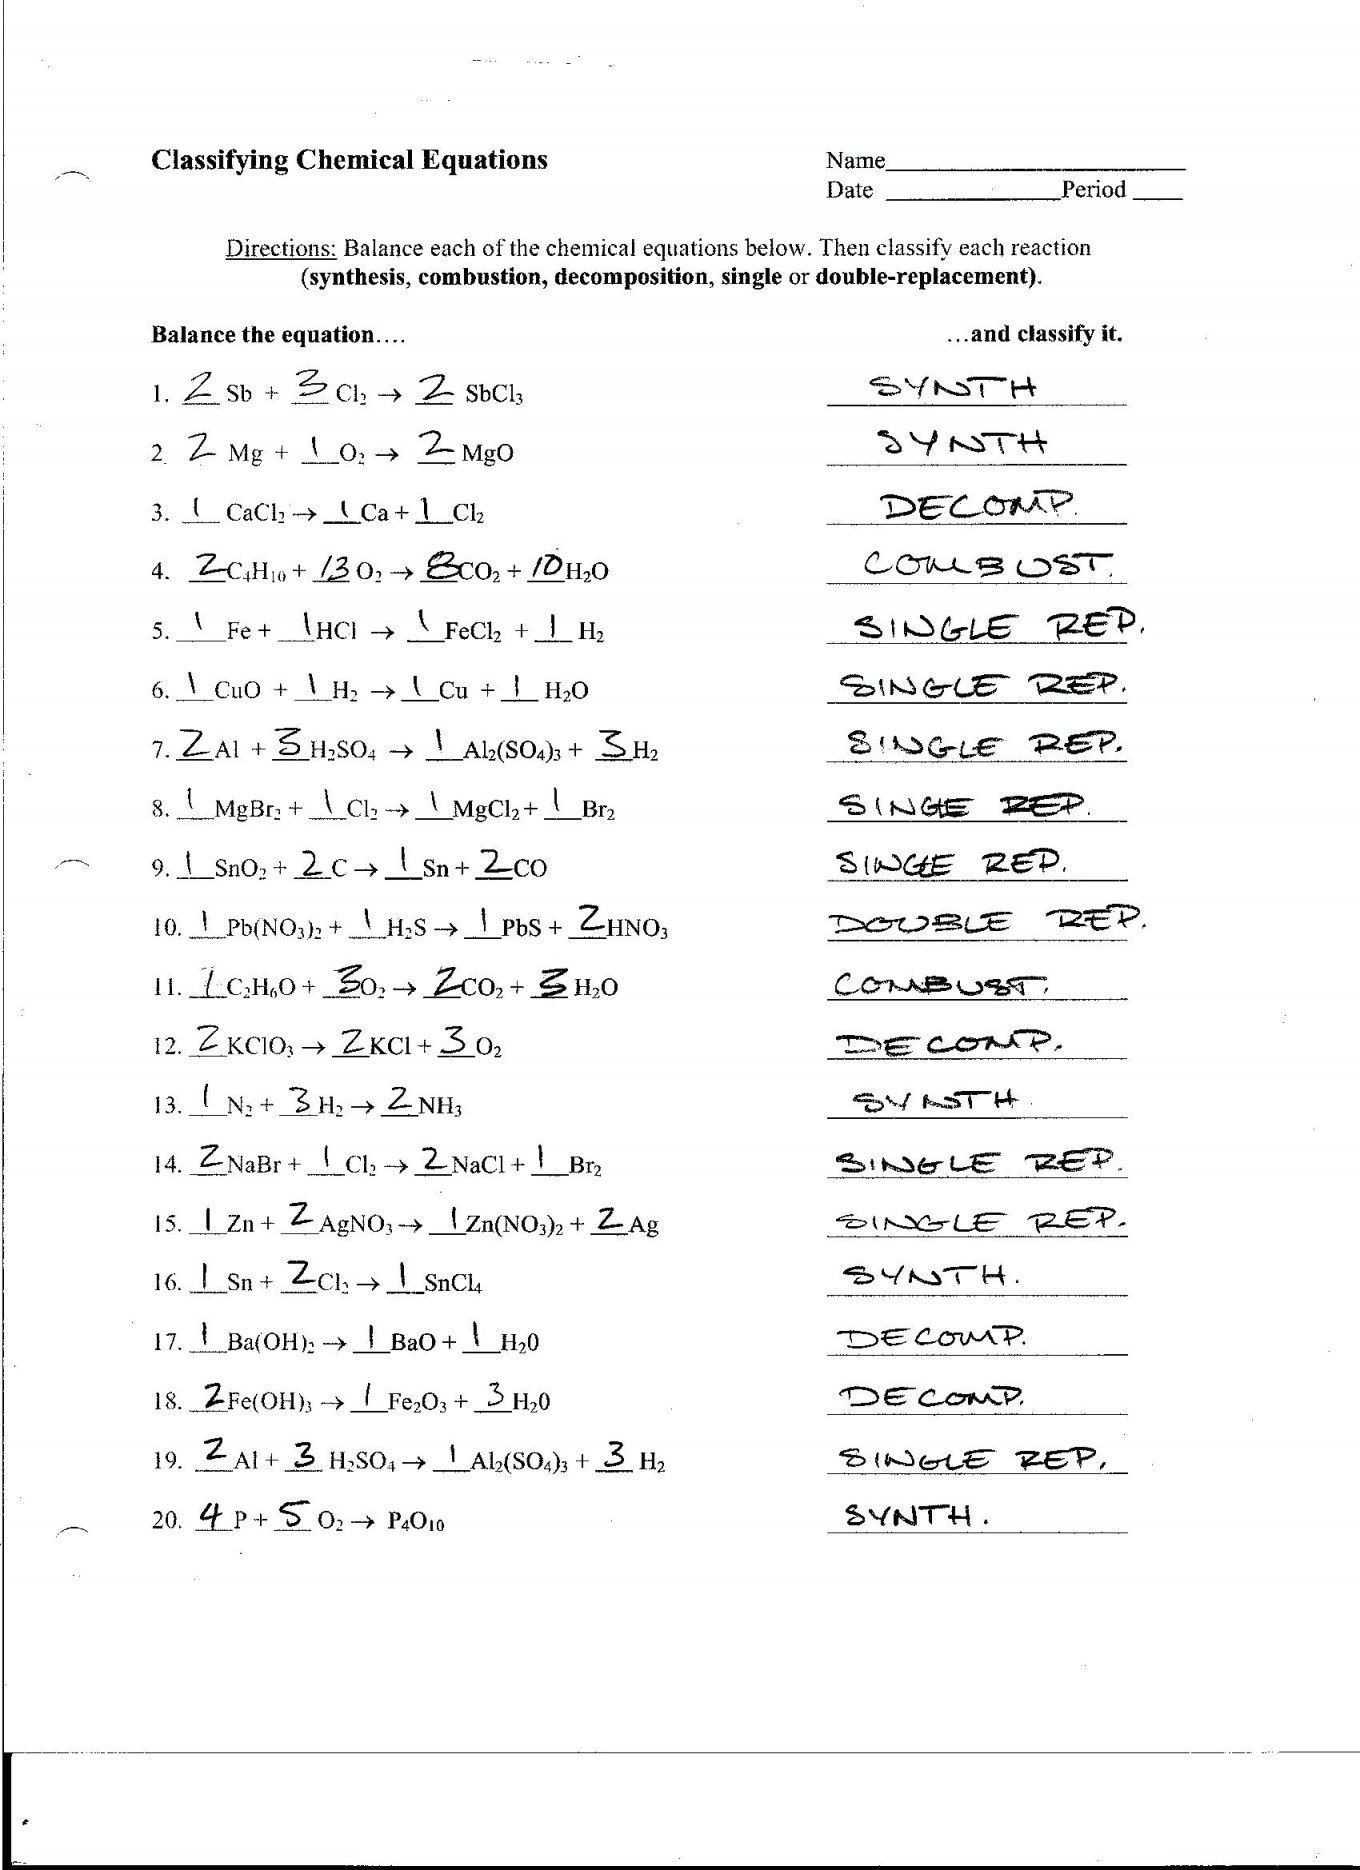 Classifying Chemical Equations Name____________
Date ____________Period ____
Directions: Balance each of the chemical equations below. Then classify each reaction
(synthesis, combustion, decomposition, single or double-replacement).
Balance the equation.... ...and classify it.
1. 2 Sb + 3 Cl₂ → 2 SbCl₃ SYNTH
2. 2 Mg + 1 O₂ → 2 MgO SYNTH
3. 1 CaCl₂ → 1 Ca + 1 Cl₂ DECOMP.
4. 2 C₄H₁₀ + 13 O₂ → 8 CO₂ + 10 H₂O COMBUST.
5. 1 Fe + 1 HCl → 1 FeCl₂ + 1 H₂ SINGLE REP.
6. 1 CuO + 1 H₂ → 1 Cu + 1 H₂O SINGLE REP.
7. 2 Al + 3 H₂SO₄ → 1 Al₂(SO₄)₃ + 3 H₂ SINGLE REP.
8. 1 MgBr₂ + 1 Cl₂ → 1 MgCl₂ + 1 Br₂ SINGLE REP.
9. 1 SnO₂ + 2 C → 1 Sn + 2 CO SINGLE REP.
10. 1 Pb(NO₃)₂ + 1 H₂S → 1 PbS + 2 HNO₃ DOUBLE REP.
11. 1 C₂H₆O + 3 O₂ → 2 CO₂ + 3 H₂O COMBUST.
12. 2 KClO₃ → 2 KCl + 3 O₂ DECOMP.
13. 1 N₂ + 3 H₂ → 2 NH₃ SYNTH.
14. 2 NaBr + 1 Cl₂ → 2 NaCl + 1 Br₂ SINGLE REP.
15. 1 Zn + 2 AgNO₃ → 1 Zn(NO₃)₂ + 2 Ag SINGLE REP.
16. 1 Sn + 2 Cl₂ → 1 SnCl₄ SYNTH.
17. 1 Ba(OH)₂ → 1 BaO + 1 H₂0 DECOMP.
18. 2 Fe(OH)₃ → 1 Fe₂O₃ + 3 H₂0 DECOMP.
19. 2 Al + 3 H₂SO₄ → 1 Al₂(SO₄)₃ + 3 H₂ SINGLE REP.
20. 4 P + 5 O₂ → P₄O₁₀ SYNTH.